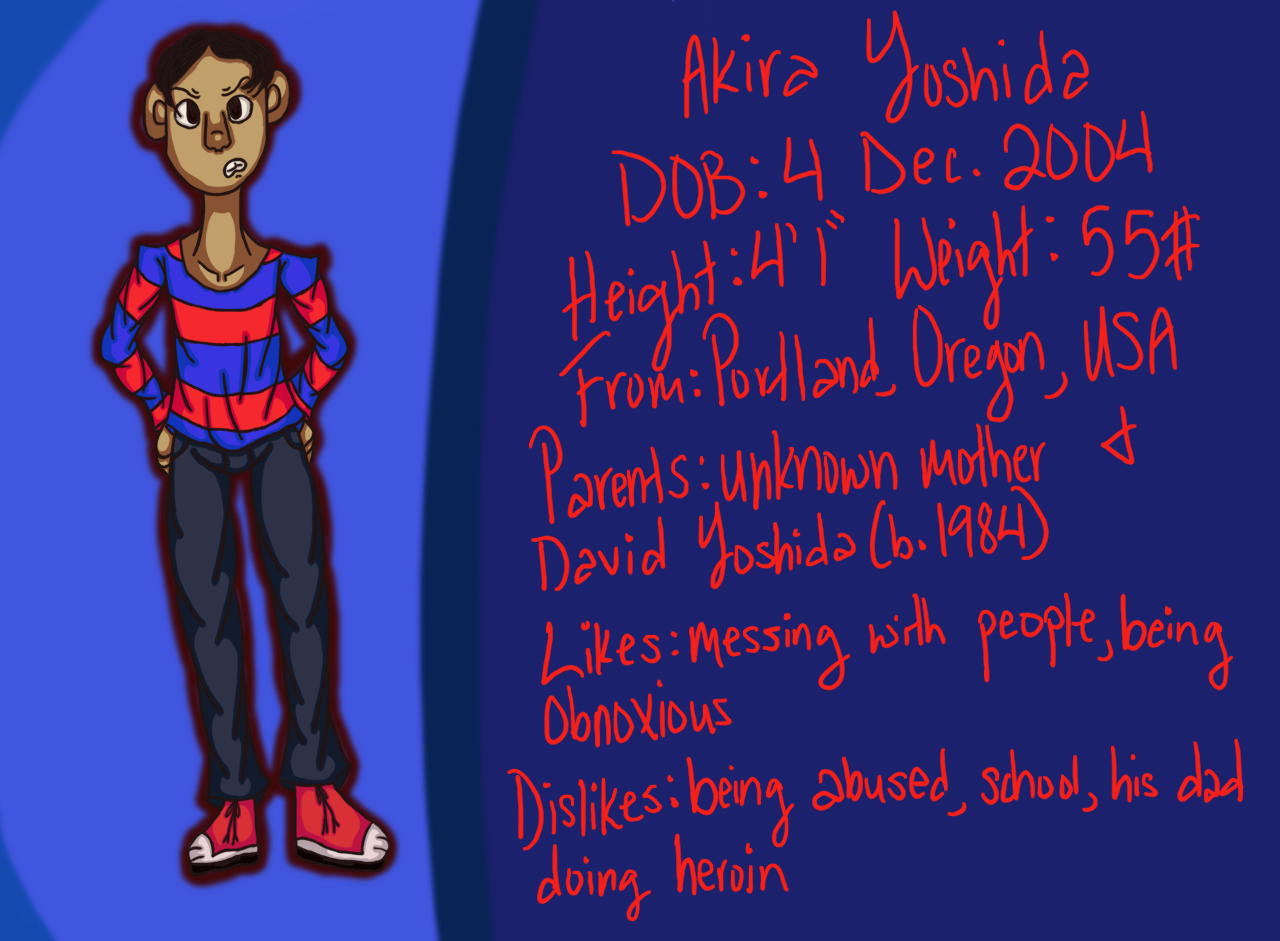 Akira Yoshida
DOB: 4 Dec. 2004
Height: 4'1" Weight: 55#
From: Portland, Oregon, USA
Parents: unknown mother &
David Yoshida (b. 1984)
Likes: messing with people, being
obnoxious
Dislikes: being abused, school, his dad
doing heroin